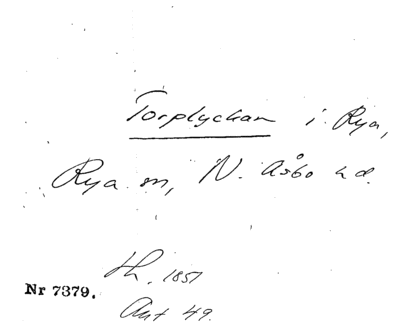 Torplyckan i Rya,
Rya sn, N. Åsbo hd.
Th. 1851
Nr 7379.
Ant 49.